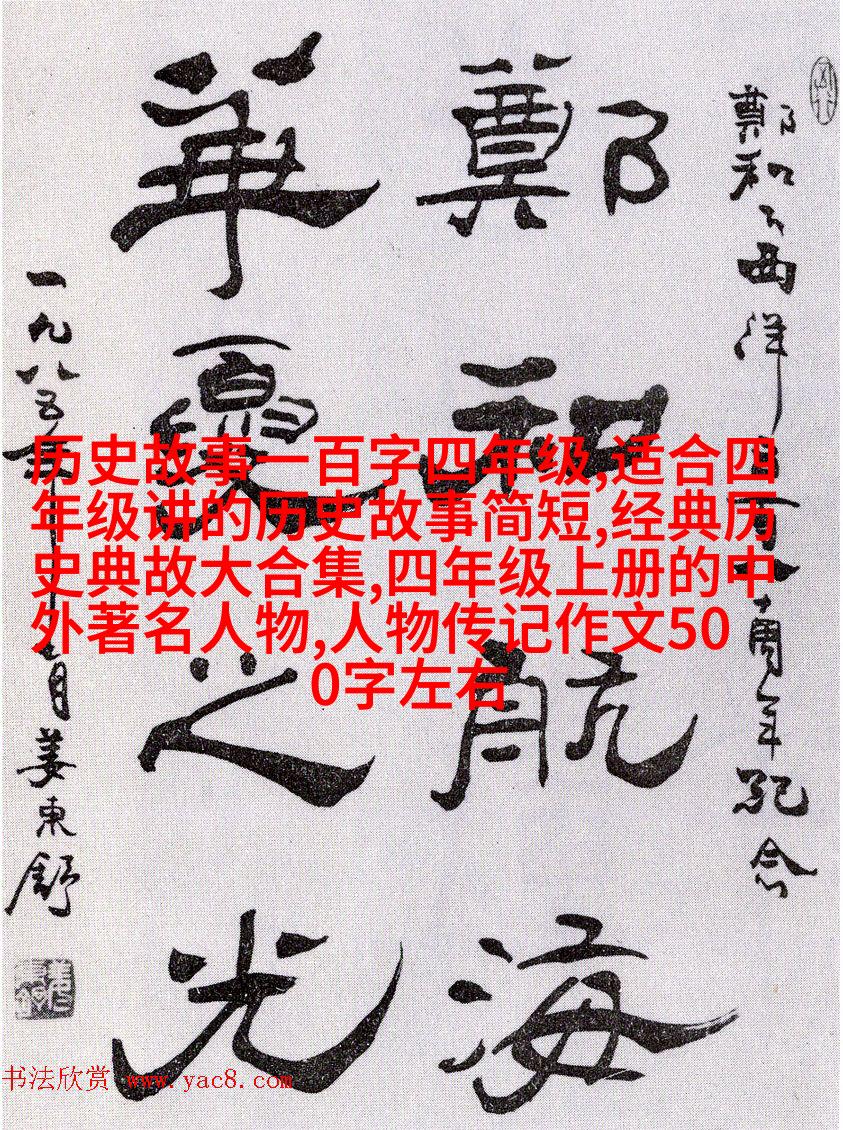 鄭和航海
華夏之光
鄭和下西洋五百八十周年紀念
一九八五年
月姜東舒
历史故事一百字四年级,适合四
年级讲的历史故事简短,经典历
史典故大合集,四年级上册的中
外著名人物,人物传记作文50
0字左右
书法欣赏 www.yac8.com